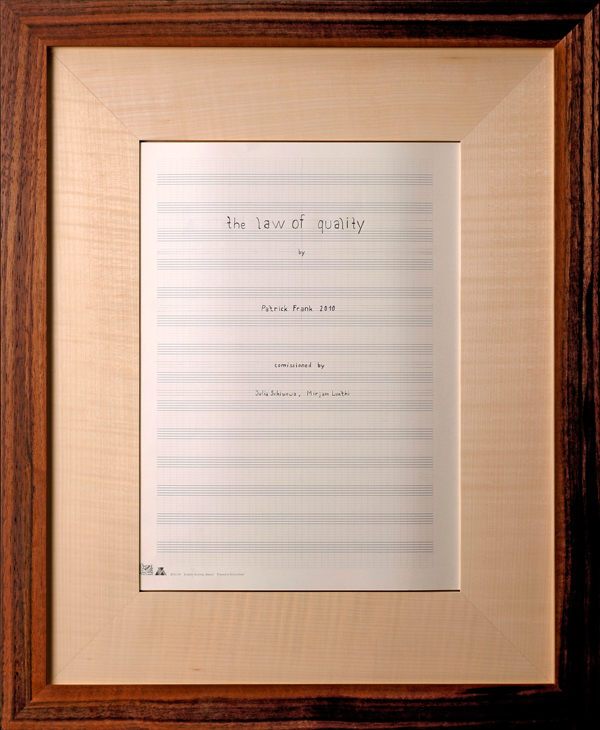 the law of quality
by
Patrick Frank 2010
comissioned by
Julia Schiwowa, Mirjam Luethi